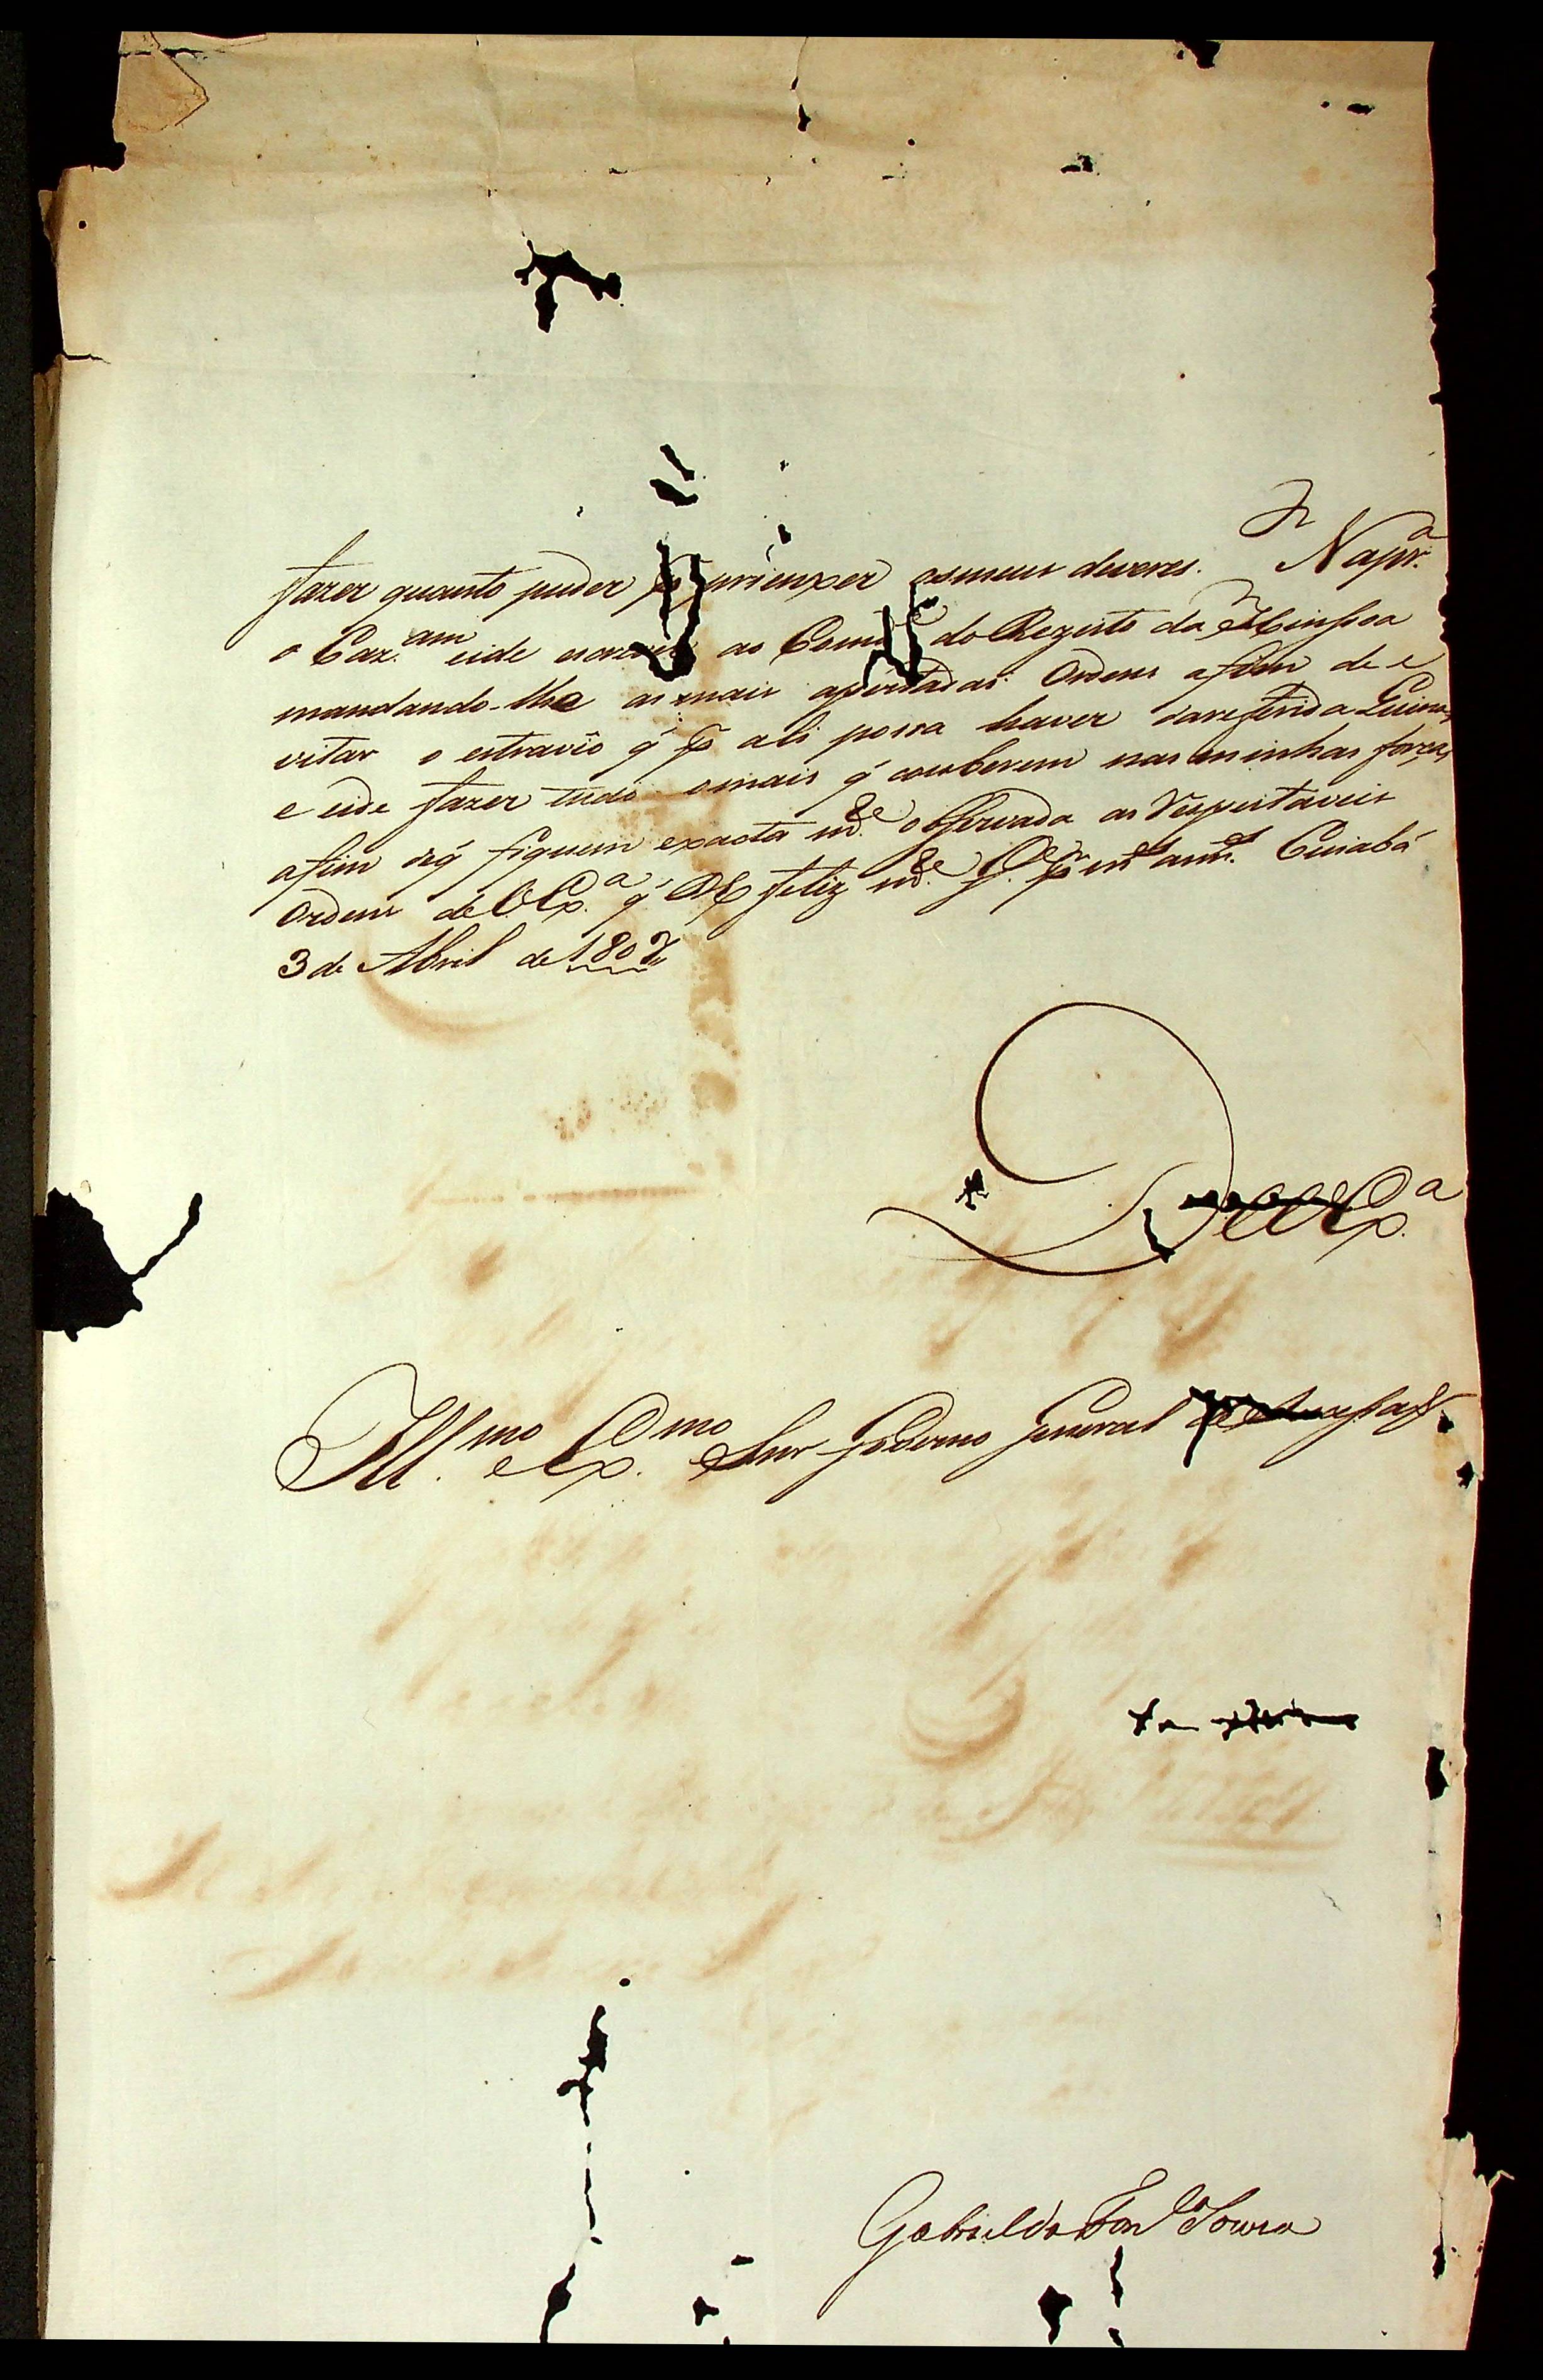 fazer quanto puder p prienxer osmeus deveres. Napr.ª
o Caz.am eide escrever ao Com.e do Registo da Insua
mandando-lhe as mais apertadas Ordens afim de e
vitar o estravio q̃ p ali possa haver darefirida Guima,
e eide fazer tudo omais q̃ couberem nas minhas forças,
afim deq̃ fiquem exacta md.e observada as Respeitaveis
Ordens de V. Ex.ª q̃ D.s feliz md.e g.e p m.s ann.s Cuiabá
3 de Abril de 1807
De V. Ex.ª
Ill.mo e Ex.mo Snr Governo General
Gabriel da Fon.ca Souza